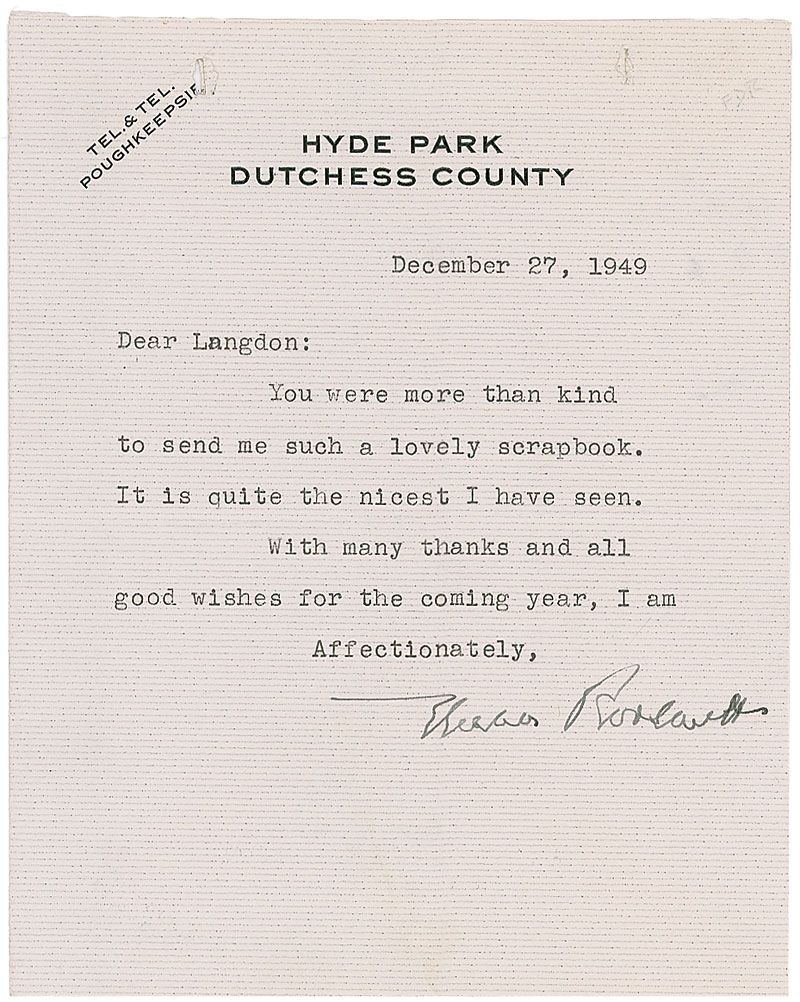 TEL. & TEL.
POUGHKEEPSIE
HYDE PARK
DUTCHESS COUNTY
December 27, 1949
Dear Langdon:
You were more than kind
to send me such a lovely scrapbook.
It is quite the nicest I have seen.
With many thanks and all
good wishes for the coming year, I am
Affectionately,
Eleanor Roosevelt